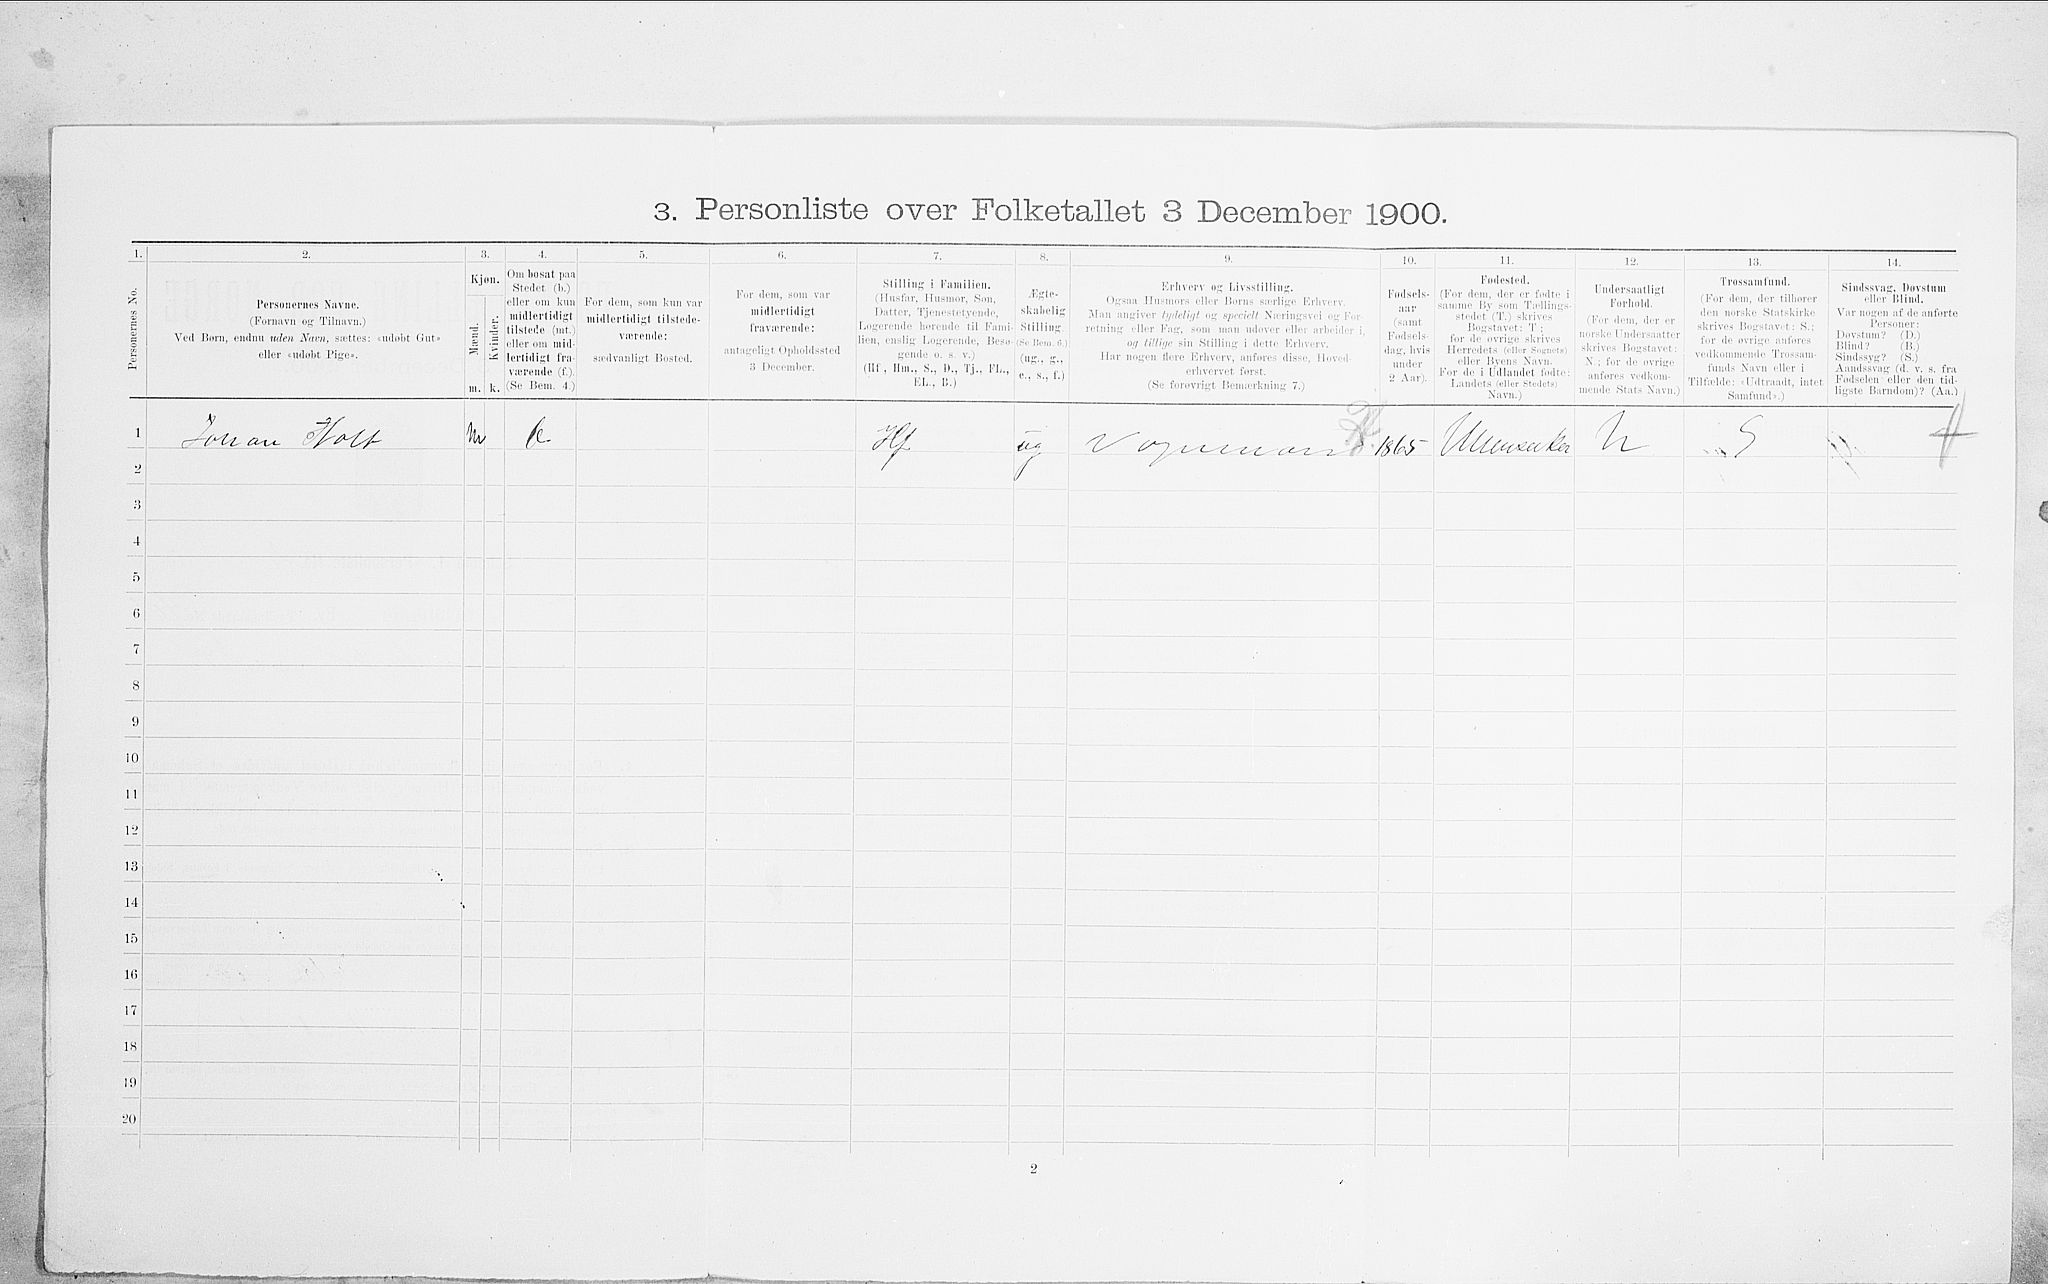 3. Personliste over Folketallet 3 December 1900.
1. 2. 3. 4. 5. 6. 7. 8. 9. 10. 11. 12. 13. 14.
Personernes No.
Personernes Navne.
(Fornavn og Tilnavn.)
Ved Børn, endnu uden Navn, sættes: «udøbt Gut»
eller «udøbt Pige».
Kjøn.
Mænd.
Kvinder.
m. k.
Om bosat paa
Stedet (b.)
eller om kun
midlertidigt
tilstede (mt.)
eller om mid-
lertidigt fra-
værende (f.)
(Se Bem. 4.)
For dem, som kun var
midlertidigt tilstede-
værende:
sædvanligt Bosted.
For dem, som var
midlertidigt
fraværende:
antageligt Opholdssted
3 December.
Stilling i Familien.
(Husfar, Husmor, Søn,
Datter, Tjenestetyende,
Logerende hørende til Fami-
lien, enslig Logerende, Besø-
gende o. s. v.)
(Hf., Hm., S., D., Tj., FL.,
EL., B.)
Ægte-
skabelig
Stilling.
(Se Bem. 6.)
(ug., g.,
e., s., f.)
Erhverv og Livsstilling.
Ogsaa Husmors eller Børns særlige Erhverv.
Man angiver tydeligt og specielt Næringsvei og For-
retning eller Fag, som man udøver eller arbeider i,
og tillige sin Stilling i dette Erhverv.
Har nogen flere Erhverv, anføres disse, Hoved-
erhvervet først.
(Se forøvrigt Bemærkning 7.)
Fødsels-
aar
(samt
Fødsels-
dag, hvis
under
2 Aar).
Fødested.
(For dem, der er fødte i
samme By som Tællings-
stedet (T.) skrives
Bogstavet: T;
for de øvrige skrives
Herredets (eller Sognets)
eller Byens Navn.
For de i Udlandet fødte:
Landets (eller Stedets)
Navn.)
Undersaatligt
Forhold.
(For dem, der er
norske Undersaatter
skrives Bogstavet:
N.; for de øvrige
anføres vedkom-
mende Stats Navn.)
Trossamfund.
(For dem, der tilhører
den norske Statskirke
skrives Bogstavet: S.;
for de øvrige anføres
vedkommende Trossam-
funds Navn eller i
Tilfælde: «Udtraadt, intet
Samfund».)
Sindssvag, Døvstum
eller Blind.
Var nogen af de anførte
Personer:
Døvstum? (D.)
Blind? (B.)
Sindssyg? (S.)
Aandssvag (d. v. s. fra
Fødselen eller den tid-
ligste Barndom)? (Aa.)
1 Johan Holt m b Hf ug Vognmand 1865 Ullensaker N S
2
3
4
5
6
7
8
9
10
11
12
13
14
15
16
17
18
19
20
2